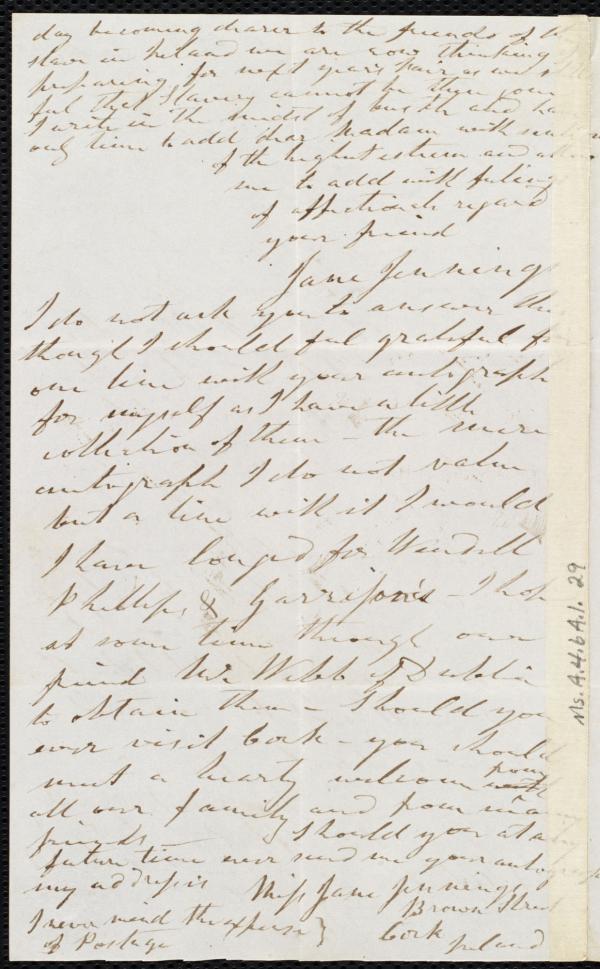 day becoming dearer to the friends of the
slave in Ireland we are now thinking &
preparing for next year's Fair as we
feel that Slavery cannot be then
I write in the midst of bustle and have
only time to add dear Madam with sentiments
of the highest esteem and allow
me to add with feelings
of affectionate regard
your friend
Jane Jennings
I do not ask you to answer this
though I should feel grateful for
one line with your autograph
for myself as I have a little
collection of them - the mere
autograph I do not value
but a line with it I would
I have longed for Wendell
Phillips, & Garrison's - I hope
at some time through our
friend Mr Webb of Dublin
to obtain them - Should you
ever visit Cork - you should
meet a hearty welcome from
all our family and from many
friends - Should you at any
future time ever send me your autograph
my address is Miss Jane Jennings
Brown Street
Cork
Ireland
I never mind the expense
of Postage
Ms. A.4.6A.1. 29